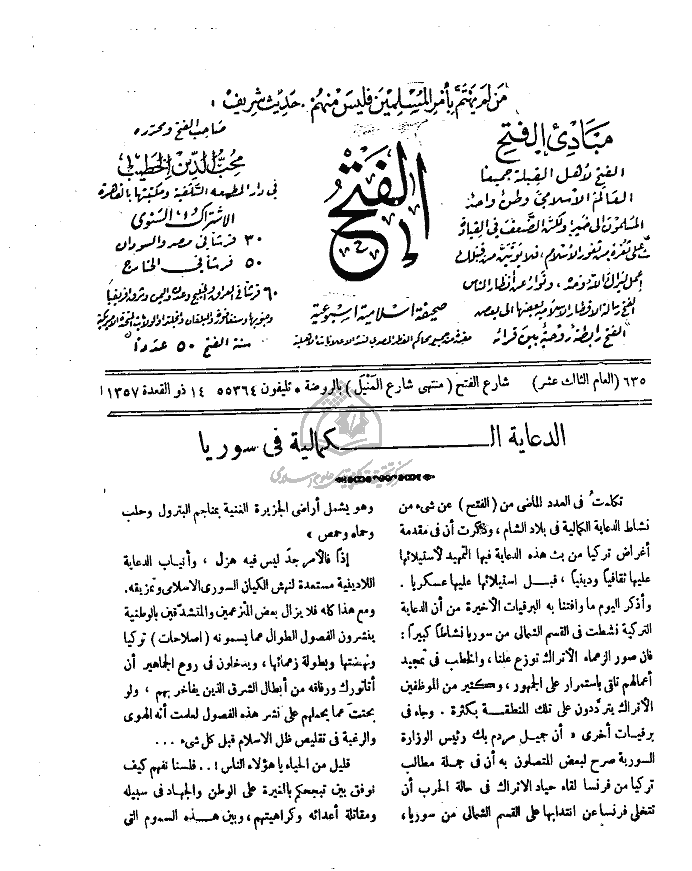 من لم يهتم بأمر المسلمين فليس منهم . حديث شريف :
مبادئ الفتح
الفتح لأهل القبلة جميعا
العالم الاسلامي وطن واحد
المسلمون الى خير ولكن الضعف في القيادة
على ثغرة من ثغور الاسلام، فلا يؤتين من قبلك
الفتح رسالة الاقطار الاسلامية بعضها الى بعض
الفتح رابطة روحية بين قرائه
الفتح
صحيفة اسلامية اسبوعية
صاحب الفتح ومحرره
محب الدين الخطيب
في دار المطبعة السلفية ومكتبتها بالقاهرة
الاشتراك السنوي
٣٠ قرشا في مصر والسودان
٥٠ قرشا في الخارج
سنة الفتح ٥٠ عددا
٦٣٥ (العام الثالث عشر) شارع الفتح (منتهى شارع المنيل) بالروضة • تليفون ٥٥٣٦٤ ١٤ ذو القعدة ١٣٥٧
الدعاية الكمالية فى سوريا
تكلمت فى العدد الماضى من (الفتح) عن شىء من
نشاط الدعاية الكمالية فى بلاد الشام ، وذكرت أن فى مقدمة
أغراض تركيا من بث هذه الدعاية فيها التمهيد لاستيلائها
عليها ثقافيا ودينيا ، قبل استيلائها عليها عسكريا .
وأذكر اليوم ما وافتنا به البرقيات الأخيرة من أن الدعاية
التركية نشطت فى القسم الشمالى من سوريا نشاطا كبيرا :
فان صور الزعماء الأتراك توزع علنا ، والخطب فى تمجيد
أعمالهم تلقى باستمرار على الجمهور ، وكثير من الموظفين
الأتراك يترددون على تلك المنطقة بكثرة . وجاء فى
برقيات أخرى « أن جميل مردم بك رئيس الوزارة
السورية صرح لبعض المتصلين به أن فى جملة مطالب
تركيا من فرنسا لقاء حياد الاتراك فى حالة الحرب أن
تتخلى فرنسا عن انتدابها على القسم الشمالى من سوريا ،
وهو يشمل أراضى الجزيرة الغنية بمناجم البترول وحلب
وحماه وحمص »
إذاً فالأمر جد ليس فيه هزل ، وأنياب الدعاية
اللادينية مستعدة لنهش الكيان السورى الاسلامى وتمزيقه.
ومع هذا كله فلا يزال بعض المتزعمين والمتشدقين بالوطنية
ينشرون الفصول الطوال عما يسمونه (اصلاحات) تركيا
ونهضتها وبطولة زعمائها ، ويدخلون فى روع الجماهير أن
أتاتورك ورفاقه من أبطال الشرق الذين يفاخر بهم ، ولو
بحثت عما يحملهم على نشر هذه الفصول لعلمت أنه الهوى
والرغبة فى تقليص ظل الاسلام قبل كل شىء ...
قليل من الحياء يا هؤلاء الناس ! .. فلسنا نفهم كيف
نوفق بين تبجحكم بالغيرة على الوطن والجهاد فى سبيله
ومقاتلة أعدائه وكراهيتهم ، وبين هذه السموم التى